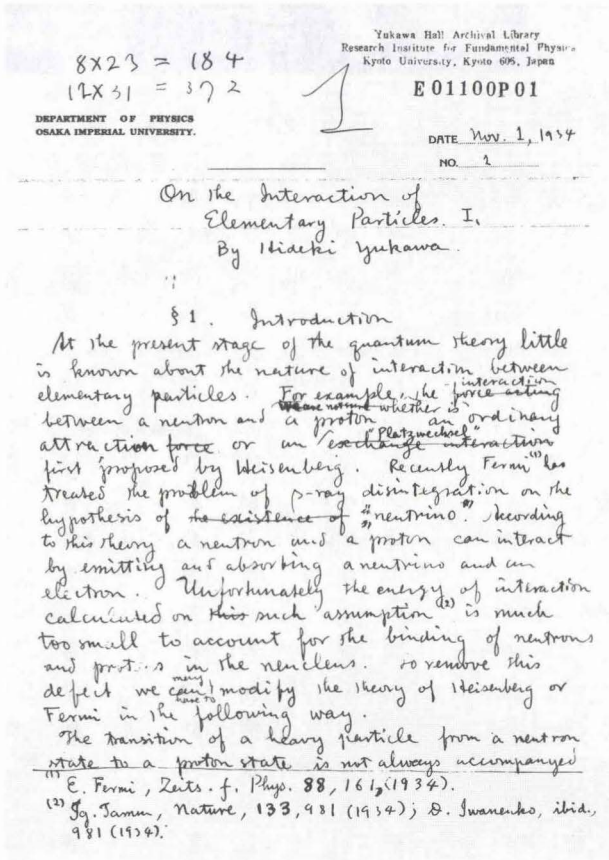 8×23 = 184
12×31 = 372
1
Yukawa Hall Archival Library
Research Institute for Fundamental Physics
Kyoto University, Kyoto 606, Japan
E01100P01
DEPARTMENT OF PHYSICS
OSAKA IMPERIAL UNIVERSITY.
DATE Nov. 1, 1934
NO. 1
On the Interaction of
Elementary Particles. I.
By Hideki Yukawa
§ 1. Introduction
At the present stage of the quantum theory little
is known about the nature of interaction between
elementary particles. For example, the force acting interaction
between a neutron and a proton whether is an ordinary
attraction force or an exchange interaction "Platzwechsel"
first proposed by Heisenberg. Recently Fermi (1) has
treated the problem of β-ray disintegration on the
hypothesis of the existence of "neutrino". According
to this theory a neutron and a proton can interact
by emitting and absorbing a neutrino and an
electron. Unfortunately the energy of interaction
calculated on this such assumption (2) is much
too small to account for the binding of neutrons
and prot s in the neucleus. To remove this
defect we can may have to modify the theory of Heisenberg or
Fermi in the following way.
The transition of a heavy particle from a neutron
state to a proton state is not always accompanyed
(1) E. Fermi, Zeits. f. Phys. 88, 161, (1934).
(2) Ig. Tamm, Nature, 133, 981 (1934); D. Iwanenko, ibid.,
981 (1934).